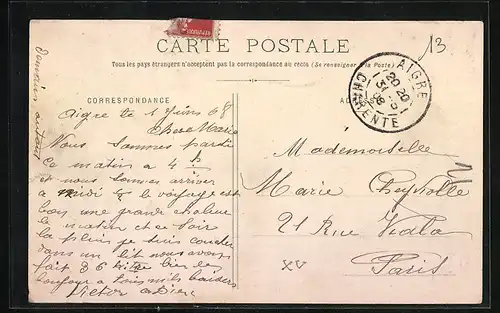 CARTE POSTALE
Tous les pays étrangers n'acceptent pas la correspondance au recto (Se renseigner à la Poste)
13
CORRESPONDANCE
AIGRE
CHARENTE
Aigre le 1 Juin
Chere Marie
Nous sommes parti
Ce matin a 4 h
et nous sommes arriver
a midi le voyage est
bon une grande chaleur
le matin et ce soir
la pluie je suis coucher
dans un lit nous avons
fait 36
bonjour a tous mils baisers
Victor
Mademoiselle
Marie
21 Rue
Paris
XV